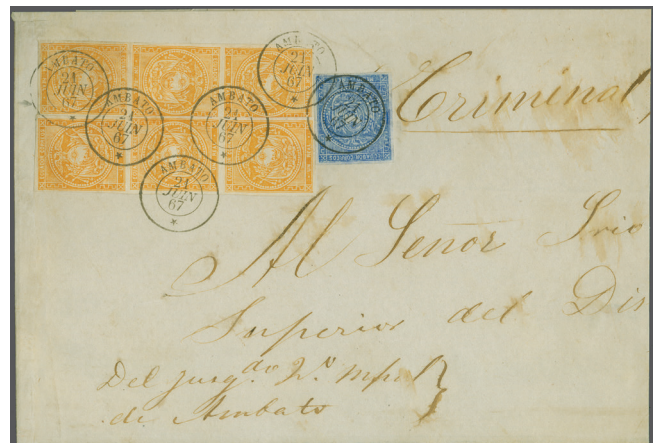 AMBATO 21 JUIN 67 *
AMBATO 21 JUIN 67 *
AMBATO 21 JUIN 67 *
AMBATO 21 JUIN 67 *
AMBATO 21 JUIN 67 *
AMBATO 21 JUIN 67 *
Criminal,
Al Señor
Superior del Dis
Del juzg.do 2.o mpal
de Ambato